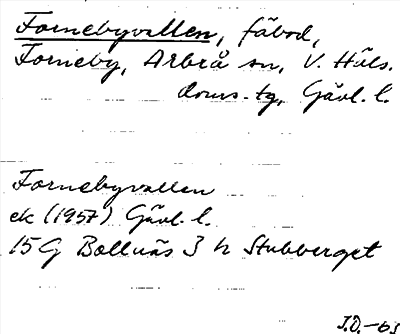 Fornebyvallen, fäbod,
Forneby, Arbrå sn, V. Häls.
doms.-tg, Gävl. l.
Fornebyvallen
ek (1957) Gävl. l.
15G Bollnäs 3 h Stubberget
I.D.-63